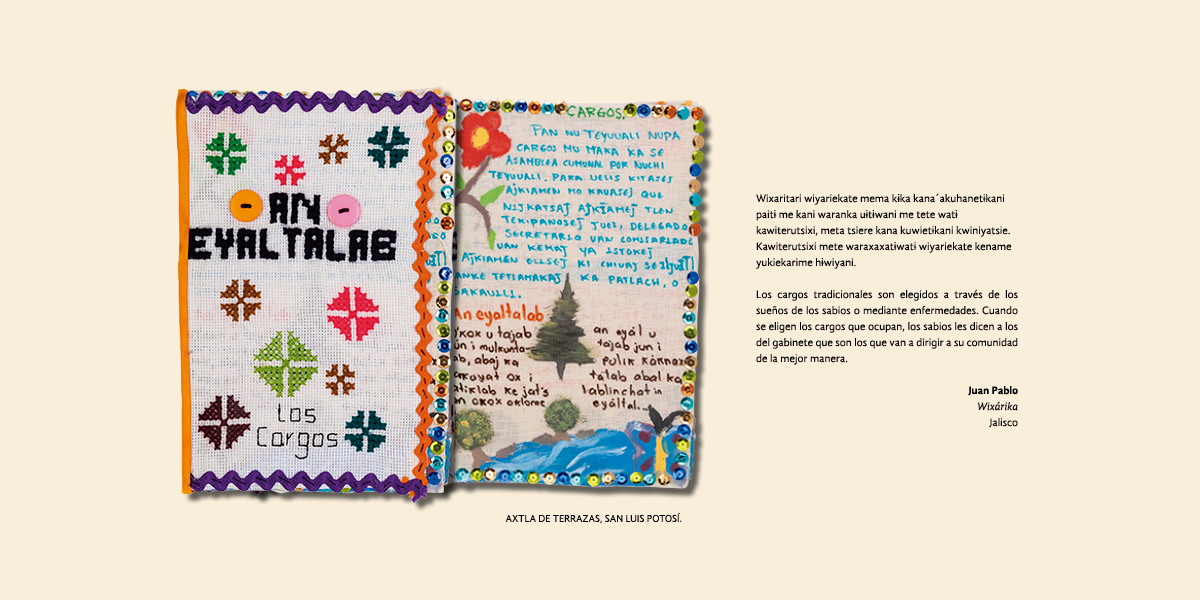 AN
EYALTALAB
Los
Cargos
CARGOS.
PAN NU TEYUUALI NUPA
CARGOS MU MAKA KA SE
ASAMBLEA CUMUNAL POR NUCHI
TEYUUALI. PARA UELIS KITASEJ
AJKIAMEN MO KAUASEJ QUE
NIJKATSAJ AJKIAMEJ TLEN
TEKIPANOSEJ JUEZ, DELEGADO
SECRETARIO UAN COMISARIADO
UAN KEMAJ YA ISTOKEJ
AJKIAMEN ELLSEJ KI CHIUAJ SE
ANKE TETLAMAKAJ KA PATLACH, O
SAKAUILI.
An eyaltalab
okox u tajab
an eyál u
tajab jun i
ab, abaj ka
pulik
tatab abal ka
ox i
ke jat's
tablinchat in
an okox
eyáltal.
AXTLA DE TERRAZAS, SAN LUIS POTOSÍ.
Wixaritari wiyariekate mema kɨka kana´akuhanetɨkani
paitɨ me kani waranka uitɨwani me tete watɨ
kawiterutsixi, meta tsiere kana kuwietɨkani kwiniyatsie.
Kawiterutsixi mete waraxaxatɨwatɨ wiyariekate kename
yukiekarime hɨwiyani.
Los cargos tradicionales son elegidos a través de los
sueños de los sabios o mediante enfermedades. Cuando
se eligen los cargos que ocupan, los sabios les dicen a los
del gabinete que son los que van a dirigir a su comunidad
de la mejor manera.
Juan Pablo
Wixárika
Jalisco